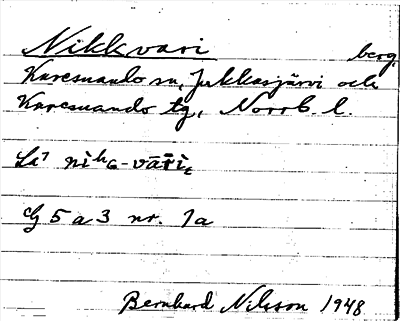 Nikkvari berg
Karesuando sn, Jukkasjärvi och
Karesuando tg, Norrb. l.
nik̀a-vāri
5 a 3 nr. 1a
Bernhard Nilsson 1948